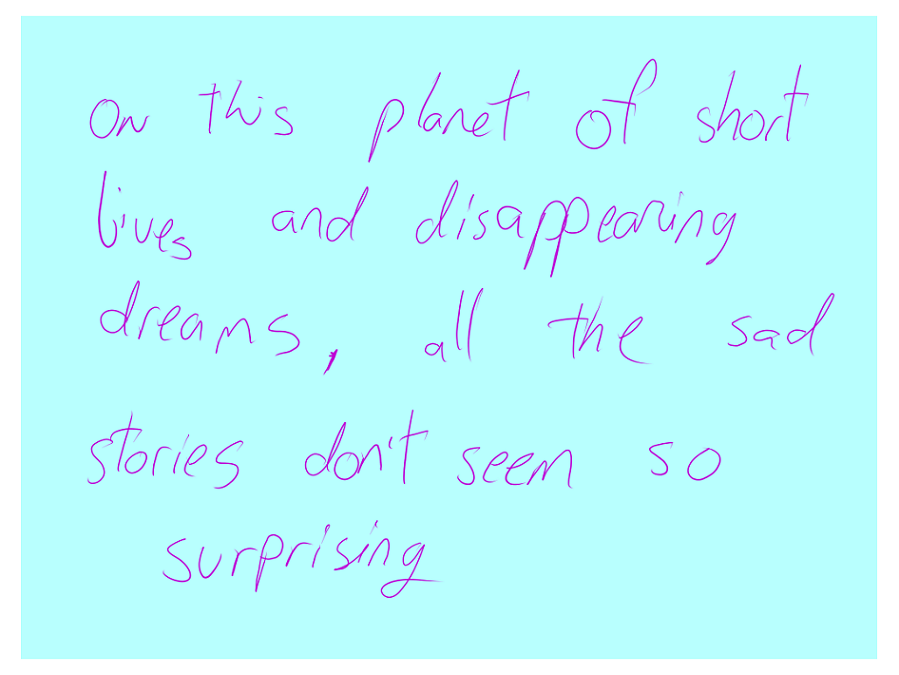 On this planet of short
lives and disappearing
dreams, all the sad
stories don't seem so
surprising